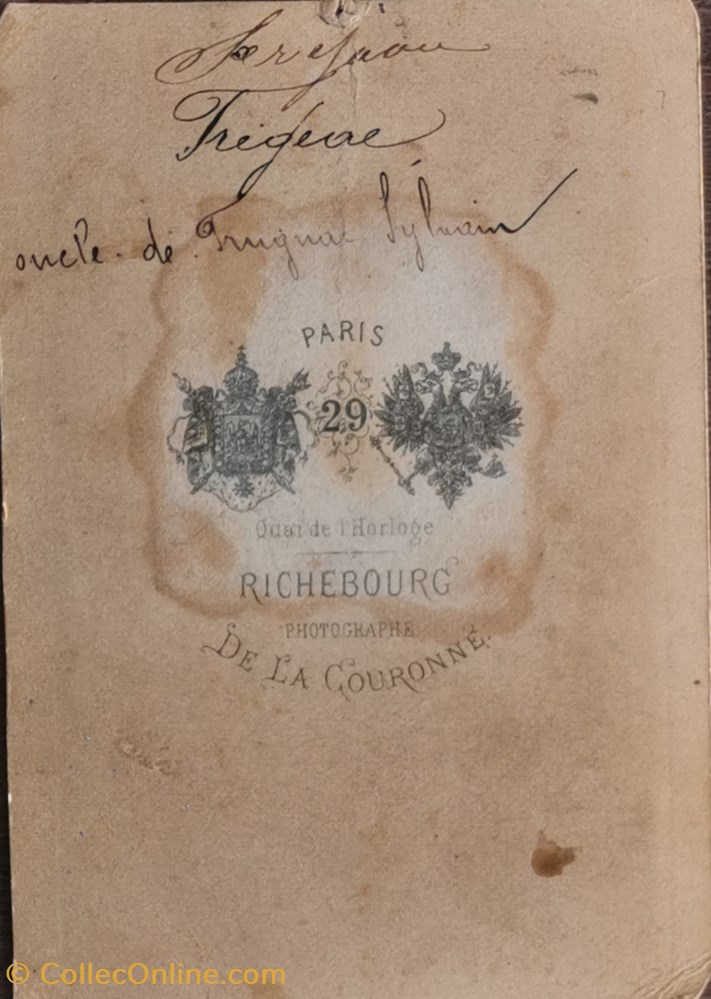 oncle de Sylvain
PARIS
29
Quai de l'Horloge
RICHEBOURG
PHOTOGRAPHE
DE LA COURONNE.
© CollecOnline.com